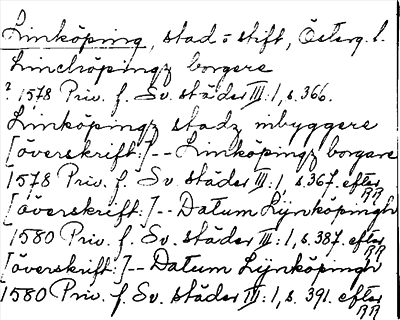 Linköping, stad o stift, Österg. l.
Linchöpingz borgere
? 1578 Priv. f. Sv. städer III: 1, s. 366.
Linköpingz stadz inbyggere
[överskrift:]-- Linköpingz borgare
1578 Priv. f. Sv. städer III: 1, s. 367. efter RR
[överskrift:]-- Datum Lijnköpingh
1580 Priv. f. Sv. städer III: 1, s. 387. efter RR
[överskrift:]-- Datum Lijnköpingh
1580 Priv. f. Sv. städer III: 1, s. 391. efter RR